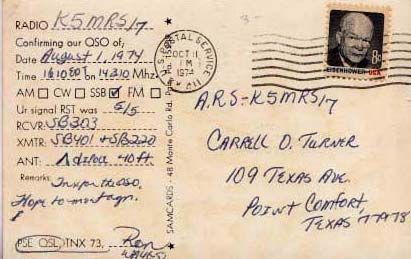 RADIO K5MRS/7
Confirming our QSO of;
Date August 1, 1974
Time 1610 GMT on 14310 Mhz.
AM CW SSB FM
Ur signal RST was 5/5
RCVR: SB303
XMTR: SB401 + SB220
ANT: 40ft.
Remarks: Tnx for the QSO.
Hope to meet agn.
PSE QSL TNX 73, Ron
SAMCARDS - 48 Monte Carlo Rd.
U.S. POSTAL SERVICE
OCT 11
PM
1974
EISENHOWER·USA
8c
A.R.S-K5MRS/7
CARRELL D. TURNER
109 TEXAS AVE.
POINT COMFORT,
TEXAS 77978